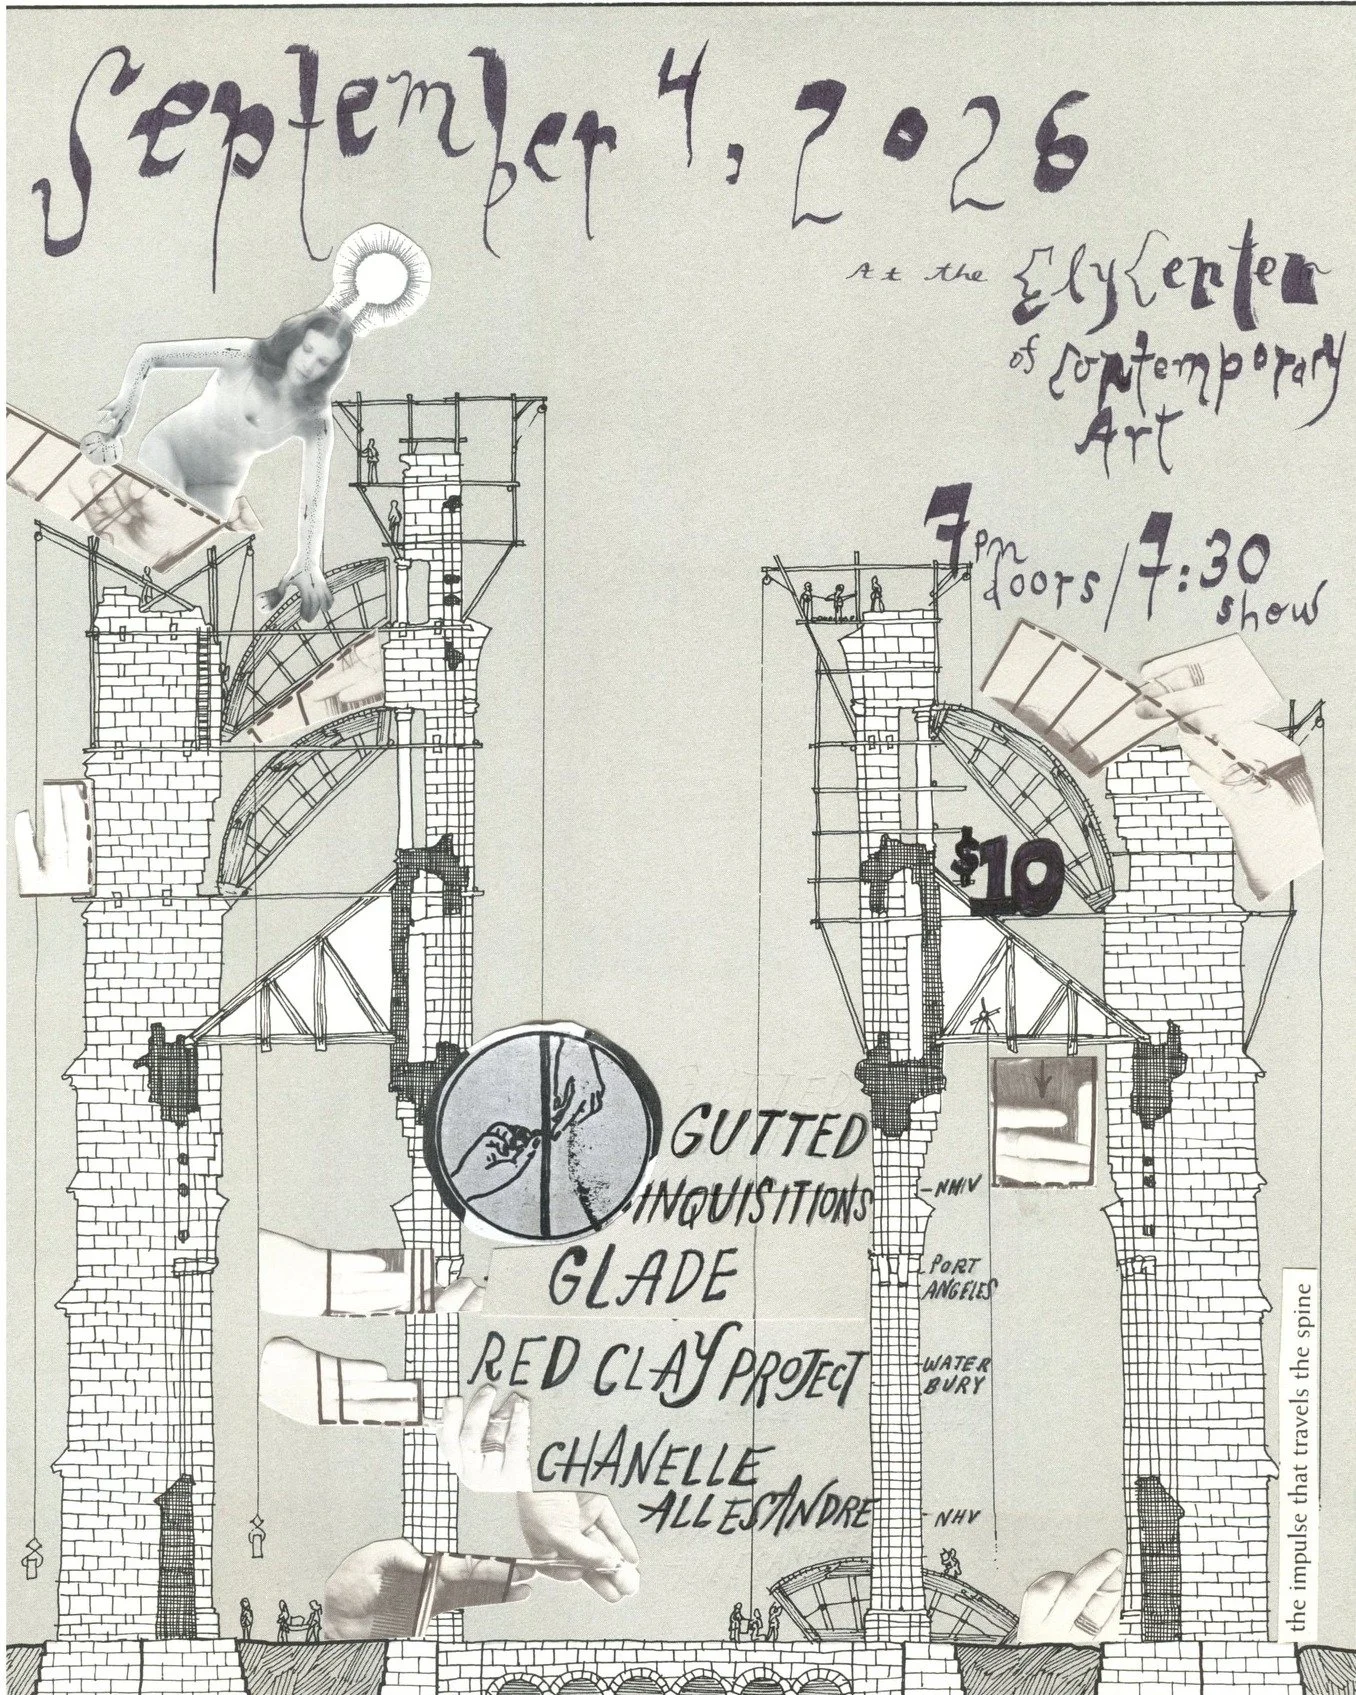 September 4, 2026
At the Ely Center
of Contemporary
Art
7pm doors / 7:30 show
$10
GUTTED
INQUISITIONS
-NHV
GLADE
- PORT
ANGELES
RED CLAY PROJECT
- WATER
BURY
CHANELLE
ALLESANDRE
- NHV
the impulse that travels the spine